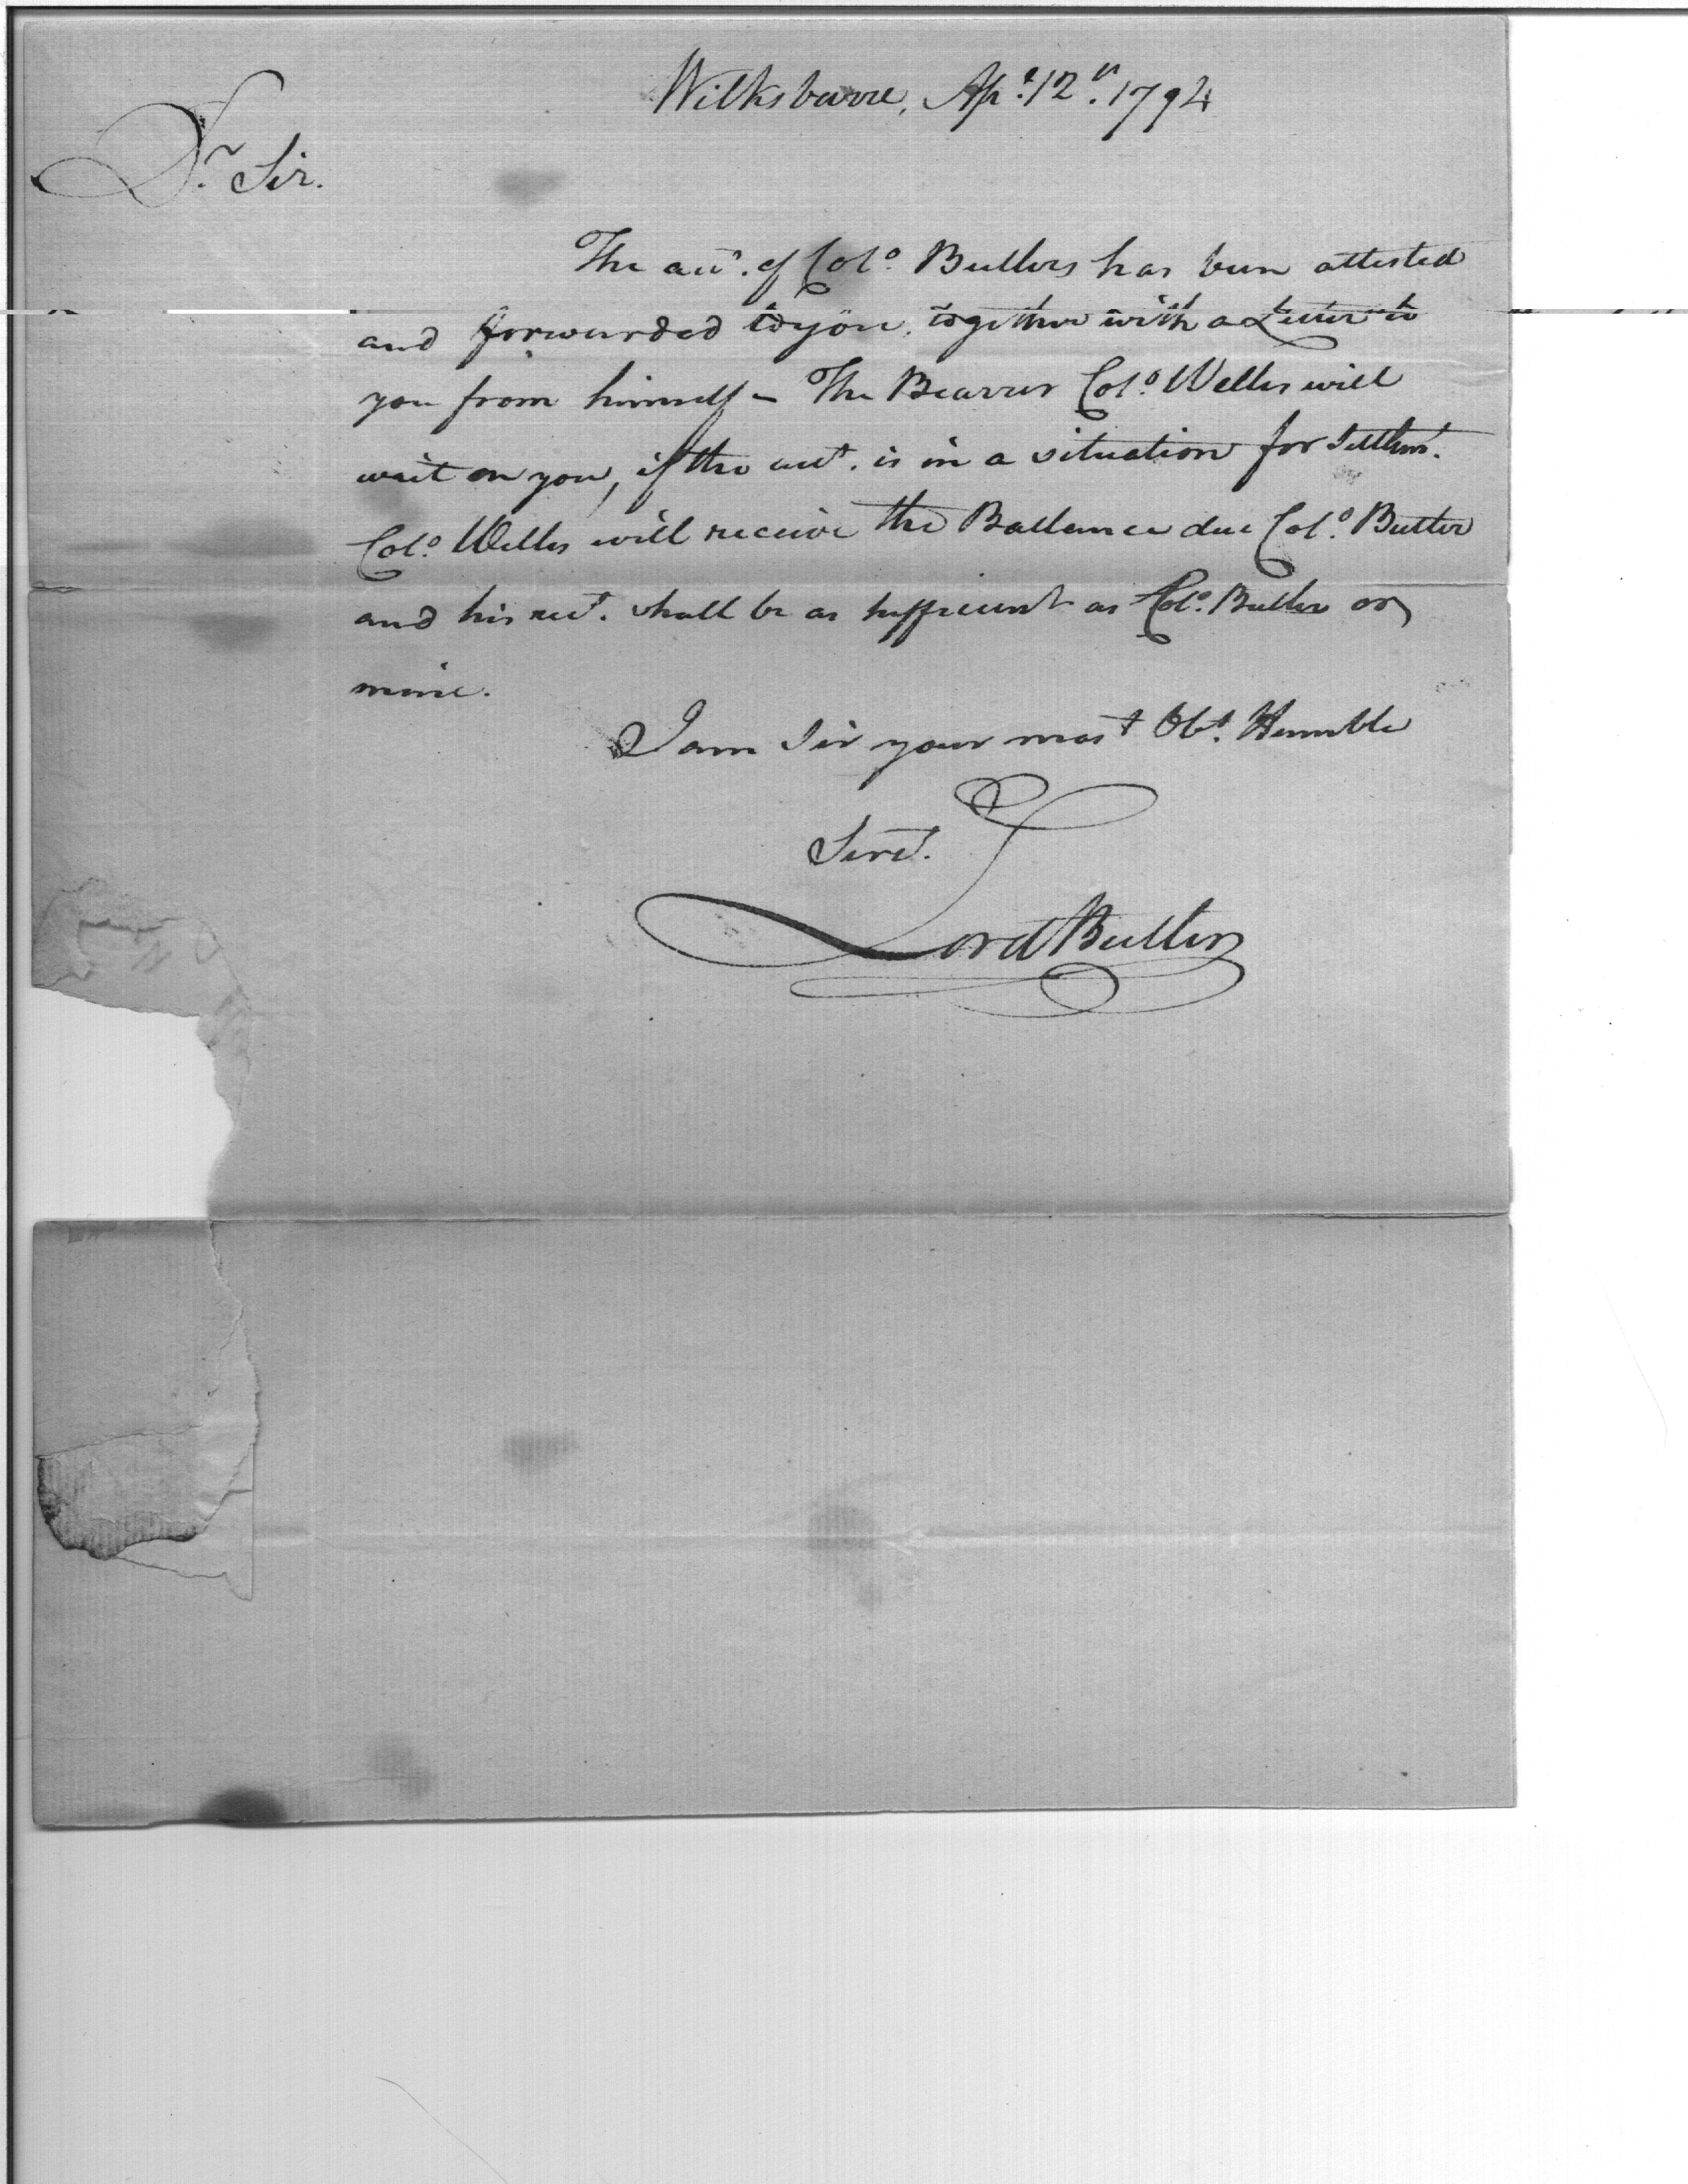 Wilksbarre, Apl. 12th. 1794
Dr. Sir.
The acct. of Colo. Butlers has been attested
and forwarded to you, together with a Letter to
you from himself – The Bearer Colo. Welles will
wait on you, if the acct. is in a situation for Settlemt.
Colo. Welles will receive the Ballance due Colo. Butler
and his rect. shall be as sufficient as Colo. Butler or
mine.
I am Sir your most Obt. Humble
Servt.
Lord Butler